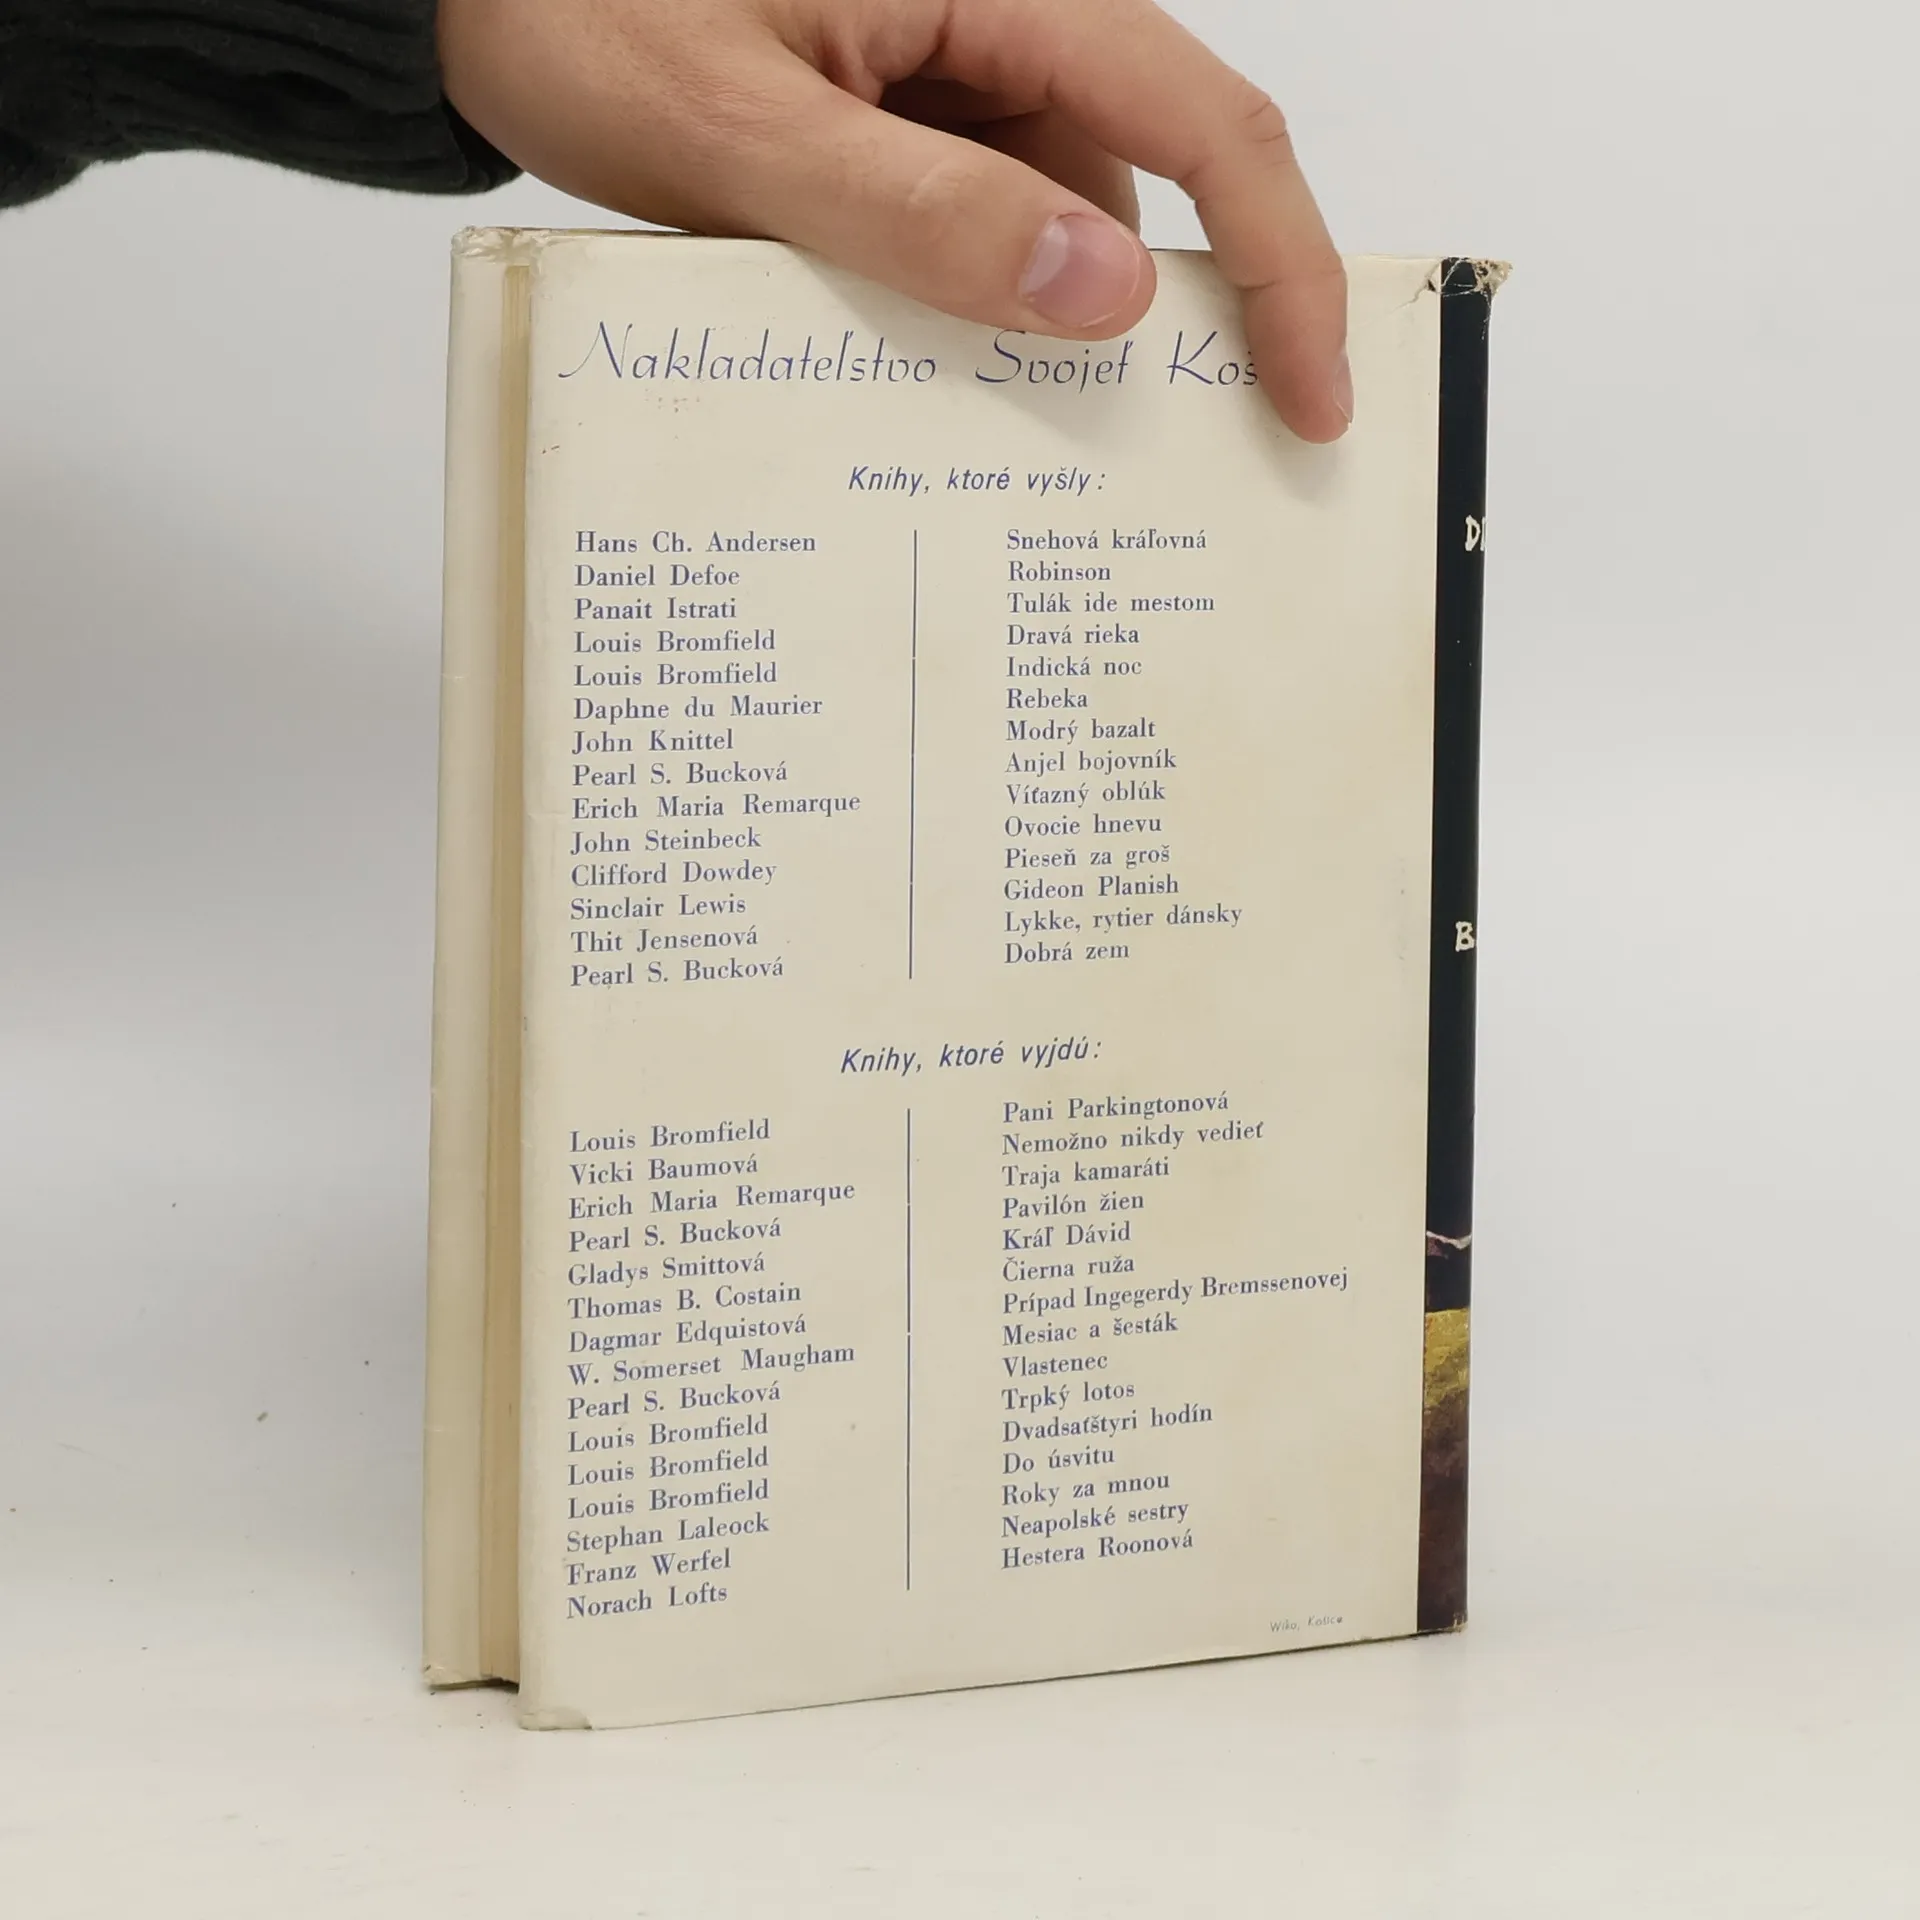 Nakladateľstvo Svojeť
Knihy, ktoré vyšly:
Hans Ch. Andersen Snehová kráľovná
Daniel Defoe Robinson
Panait Istrati Tulák ide mestom
Louis Bromfield Dravá rieka
Louis Bromfield Indická noc
Daphne du Maurier Rebeka
John Knittel Modrý bazalt
Pearl S. Bucková Anjel bojovník
Erich Maria Remarque Víťazný oblúk
John Steinbeck Ovocie hnevu
Clifford Dowdey Pieseň za groš
Sinclair Lewis Gideon Planish
Thit Jensenová Lykke, rytier dánsky
Pearl S. Bucková Dobrá zem
Knihy, ktoré vyjdú:
Louis Bromfield Pani Parkingtonová
Vicki Baumová Nemožno nikdy vedieť
Erich Maria Remarque Traja kamaráti
Pearl S. Bucková Pavilón žien
Gladys Smittová Kráľ Dávid
Thomas B. Costain Čierna ruža
Dagmar Edquistová Prípad Ingegerdy Bremssenovej
W. Somerset Maugham Mesiac a šesták
Pearl S. Bucková Vlastenec
Louis Bromfield Trpký lotos
Louis Bromfield Dvadsaťštyri hodín
Louis Bromfield Do úsvitu
Stephan Laleock Roky za mnou
Franz Werfel Neapolské sestry
Norach Lofts Hestera Roonová